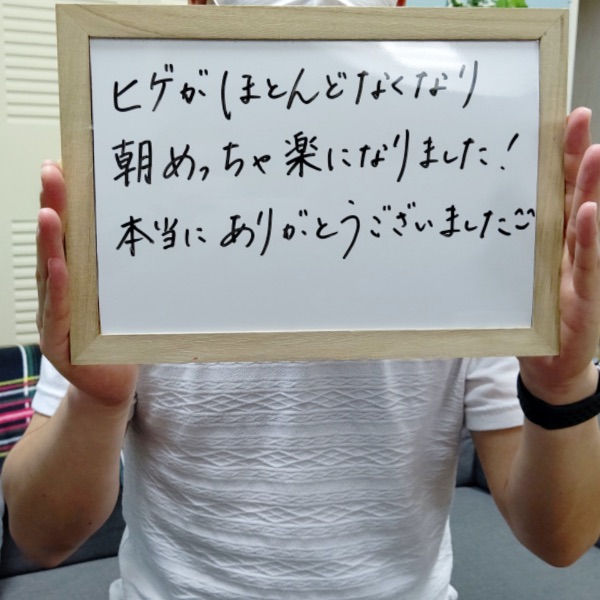 ヒゲがほとんどなくなり
朝めっちゃ楽になりました!
本当にありがとうございました